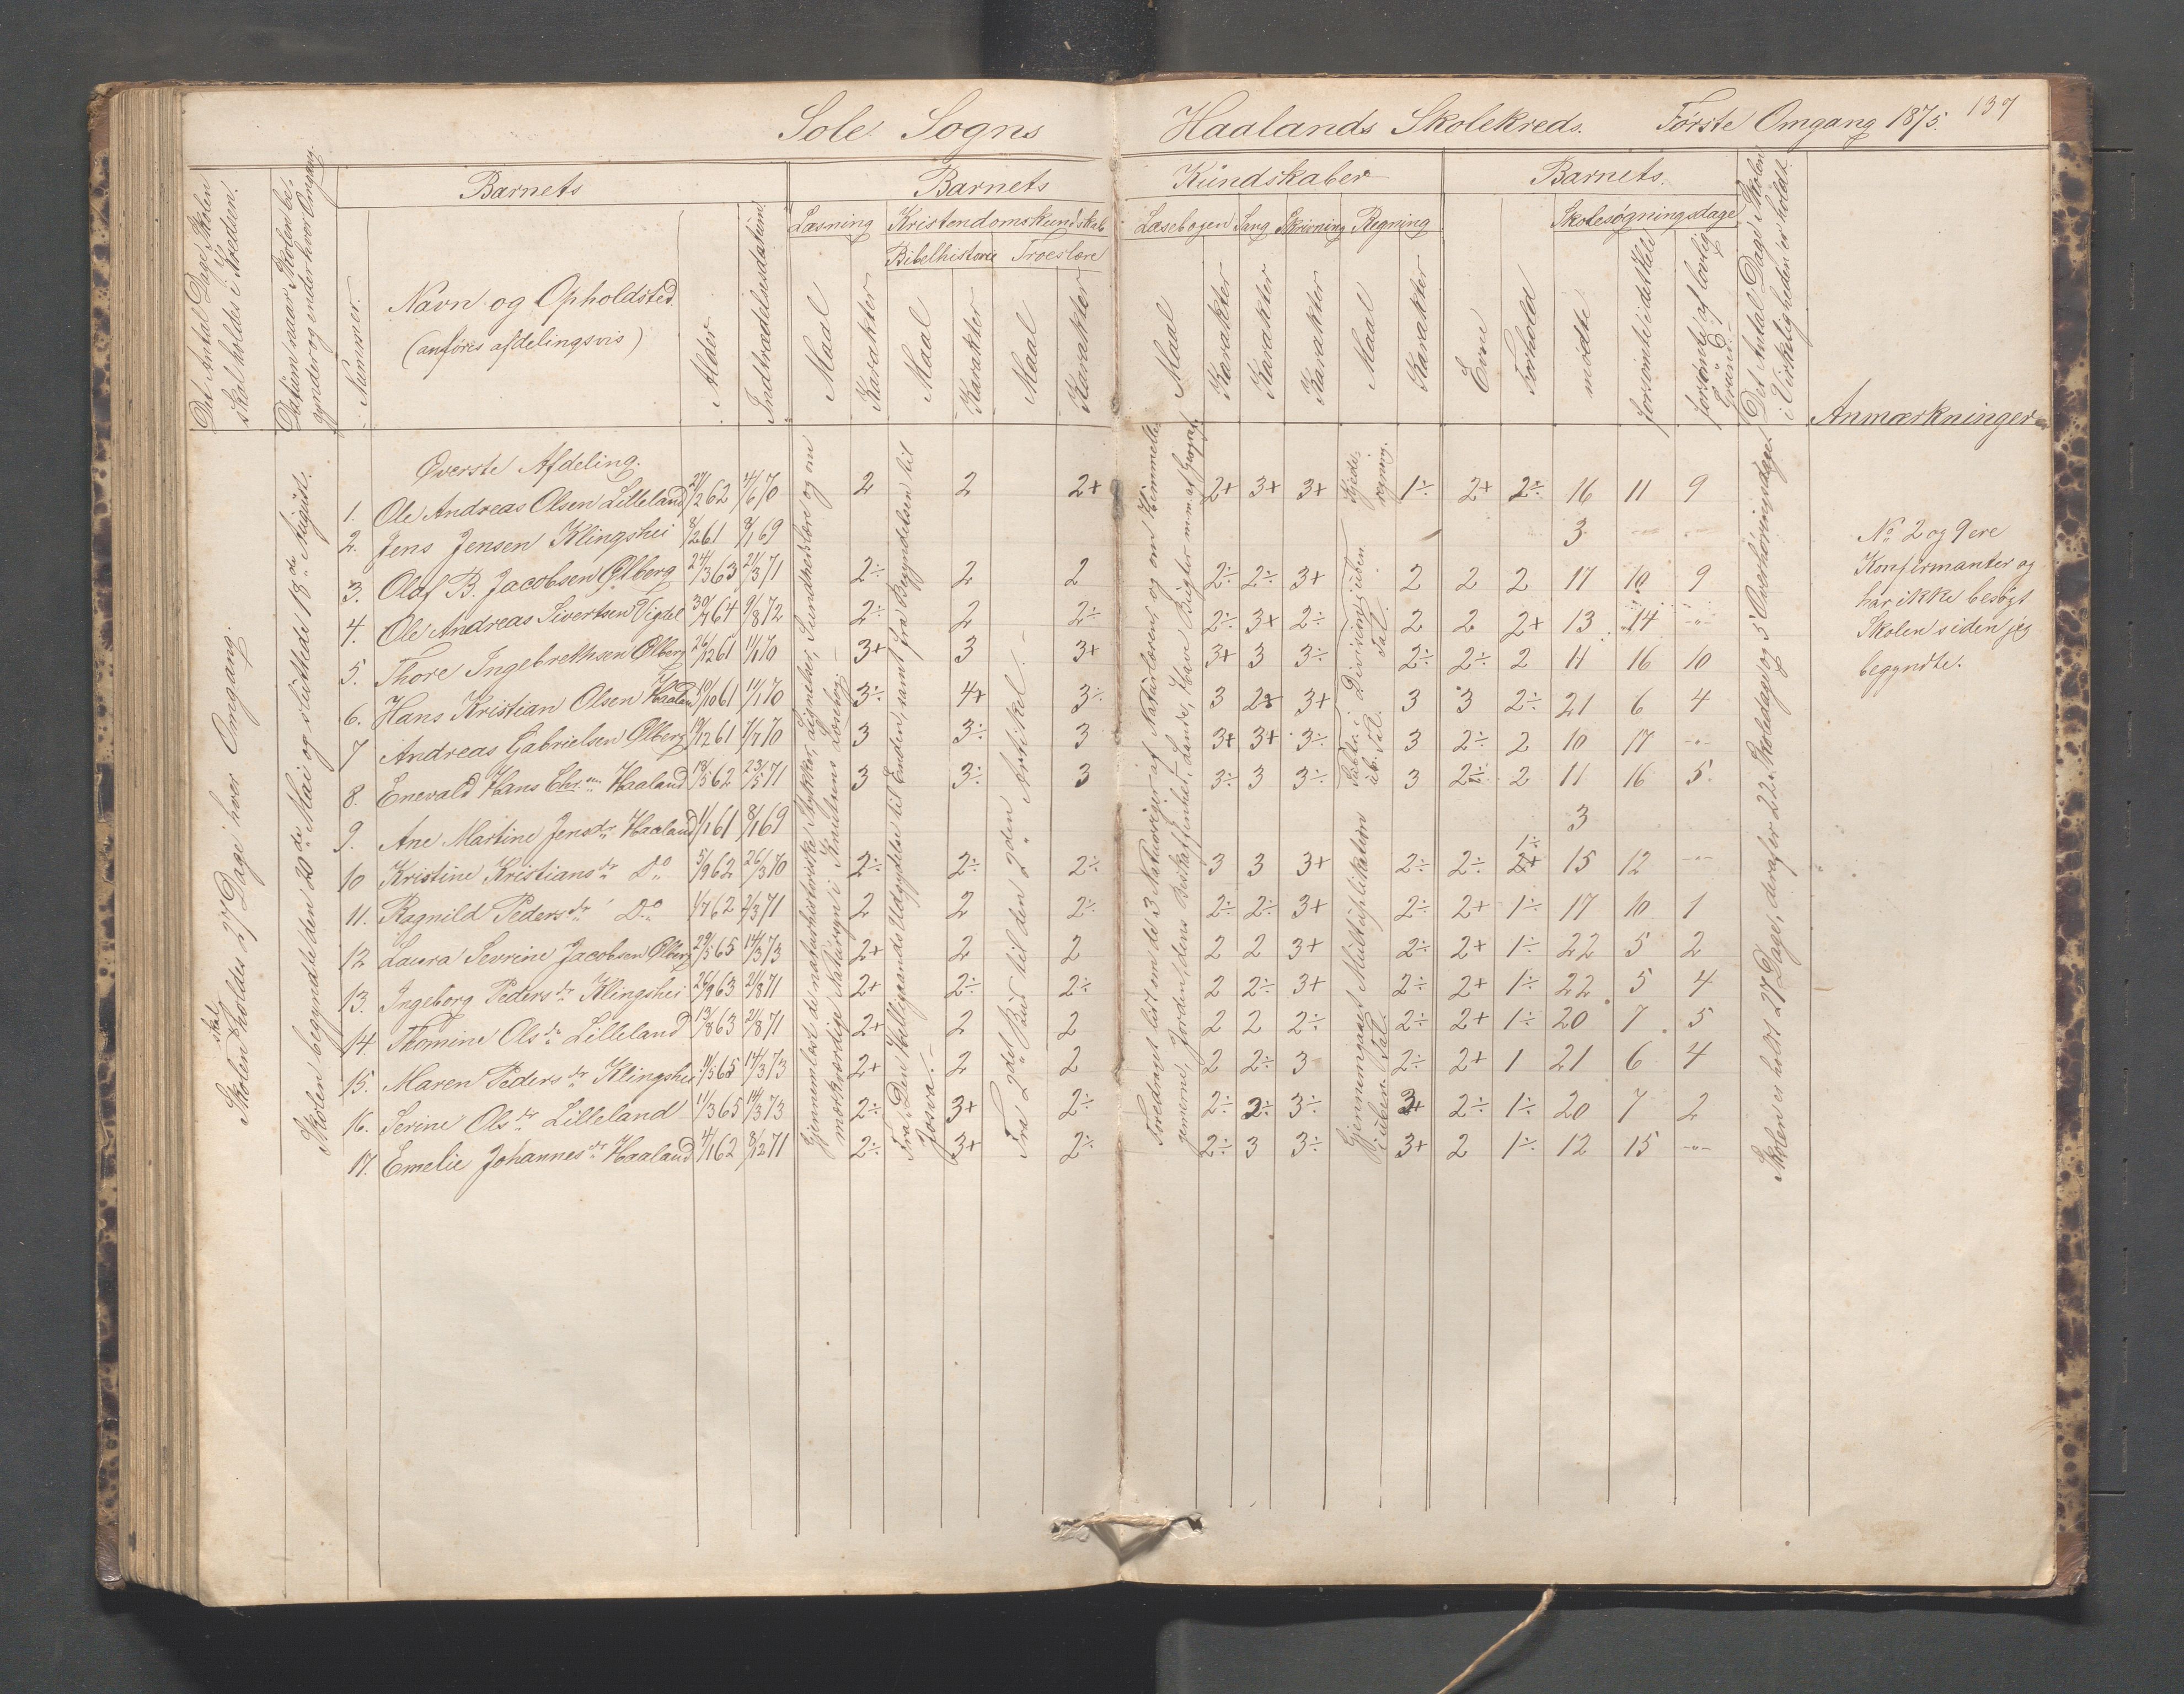 Sole Sogns Haalands Skolekreds. Første Omgang 1875. 137
Det Antal Dage Skolen skal holdes i Kredsen.
Datum naar Skolen begynder og ender hver Omgang.
Barnets
Nummer.
Navn og Opholdsted.
(anføres afdelingsvis)
Alder
Indtrædelsesdatum.
Barnets Kundskaber
Læsning Kristendomskundskab
Bibelhistorie Troeslære
Maal Karakter Maal Karakter Maal Karakter
Læsebogen Sang Skrivning Regning
Maal Karakter Karakter Karakter Maal Karakter
Barnets.
Evne Forhold
Skolesøgningsdage
mødte forsømte i det Hele forsømte af lovlig Grund.
Det Antal Dage Skolen i Virkeligheden er holdt.
Anmærkninger
Skolen skal holdes 27 Dage i hver Omgang.
Skolen begyndte den 20de Mai og sluttede 18de August.
Øverste Afdeling.
1. Ole Andreas Olsen Lilleland 27/2 62 4/6 70 2 2 2+ 2+ 3+ 3+ 1÷ 2+ 2÷ 16 11 9
2. Jens Jensen Klingshei 8/2 61 8/1 69 3
3. Olaf B. Jacobsen Ølberg 24/3 63 21/3 71 2÷ 2 2 2÷ 2÷ 3+ 2 2 2 17 10 9
4. Ole Andreas Sivertsen Vigdel 30/7 64 9/8 72 2÷ 2 2÷ 2÷ 3+ 2÷ 2 2 2+ 13 14 -"-
5. Thore Ingebrethsen Ølberg 26/12 61 11/1 70 3+ 3 3+ 3+ 3 3÷ 2÷ 2÷ 2 11 16 10
6. Hans Kristian Olsen Haaland 10/10 61 11/1 70 3÷ 4+ 3÷ 3 3+ 3 3 2÷ 21 6 4
7 Andreas Gabrielsen Ølberg 19/12 61 7/7 70 3 3÷ 3 3+ 3+ 3÷ 3 2÷ 2 10 17 -"-
8. Enevald Hans Chr. Haaland 18/5 62 23/5 71 3 3÷ 3 3÷ 3 3÷ 3 2÷ 2 11 16 5
9. Ane Martine Jensdr Haaland 1/1 61 8/1 69 3
10 Kristine Kristiansdr Do 5/9 62 26/3 70 2÷ 2÷ 2÷ 3 3 3+ 2÷ 2÷ 1÷ 15 12 -"-
11. Ragnild Pedersdr Do 1/7 62 2/3 71 2 2 2÷ 2÷ 2÷ 3+ 2÷ 2+ 1÷ 17 10 1
12 Laura Sevrine Jacobsen Ølberg 29/5 65 14/3 73 2+ 2 2 2 2 3+ 2÷ 2+ 1÷ 22 5 2
13. Ingeborg Pedersdr Klingshei 26/9 63 21/8 71 2+ 2÷ 2÷ 2 2÷ 3+ 2÷ 2+ 1÷ 22 5 4
14 Thomine Olsdr Lilleland 13/8 63 2/8 71 2+ 2 2 2 2 2÷ 2÷ 2+ 1÷ 20 7 5
15. Maren Pedersdr Klingshei 11/5 65 14/3 73 2+ 2 2 2 2÷ 3 2÷ 2+ 1 21 6 4
16. Serine Olsdr Lilleland 11/3 65 14/3 73 2÷ 3+ 2÷ 2÷ 2÷ 3÷ 2÷ 1÷ 20 7 2
17. Emelie Johannesdr Haaland 4/1 62 8/12 71 2÷ 3+ 2÷ 2÷ 3 3÷ 3+ 2 1÷ 12 15 -"-
Gjennemlæst de naturhistoriske Stykker, Lignelser, Sundhedslære og om
mærkværdige Natursyn i Knutsens Læsebog.
Fra Den Helligaands Udgydelse til Enden, samt fra Begyndelsen til
Josva.
Fra 2det Bud til den 2den Artikel.
Foredraget lidt om de 3 Naturriger af Naturlæren og om Himmellegemerne, Jorden, dens Beskaffenhed, Lande, Have Bugter m.m. af
Kjederegning.
Division i uben. Tal.
Subtr. i ub. Tal.
Gjennemgaaet Multiplikation
i uben. Tal.
Skolen er holdt 27 Dage, deraf er 22 Skoledage og 5 Overhøringsdage.
No 2 og 9 ere
Konfirmanter og
har ikke besøgt
Skolen siden jeg
begyndte.